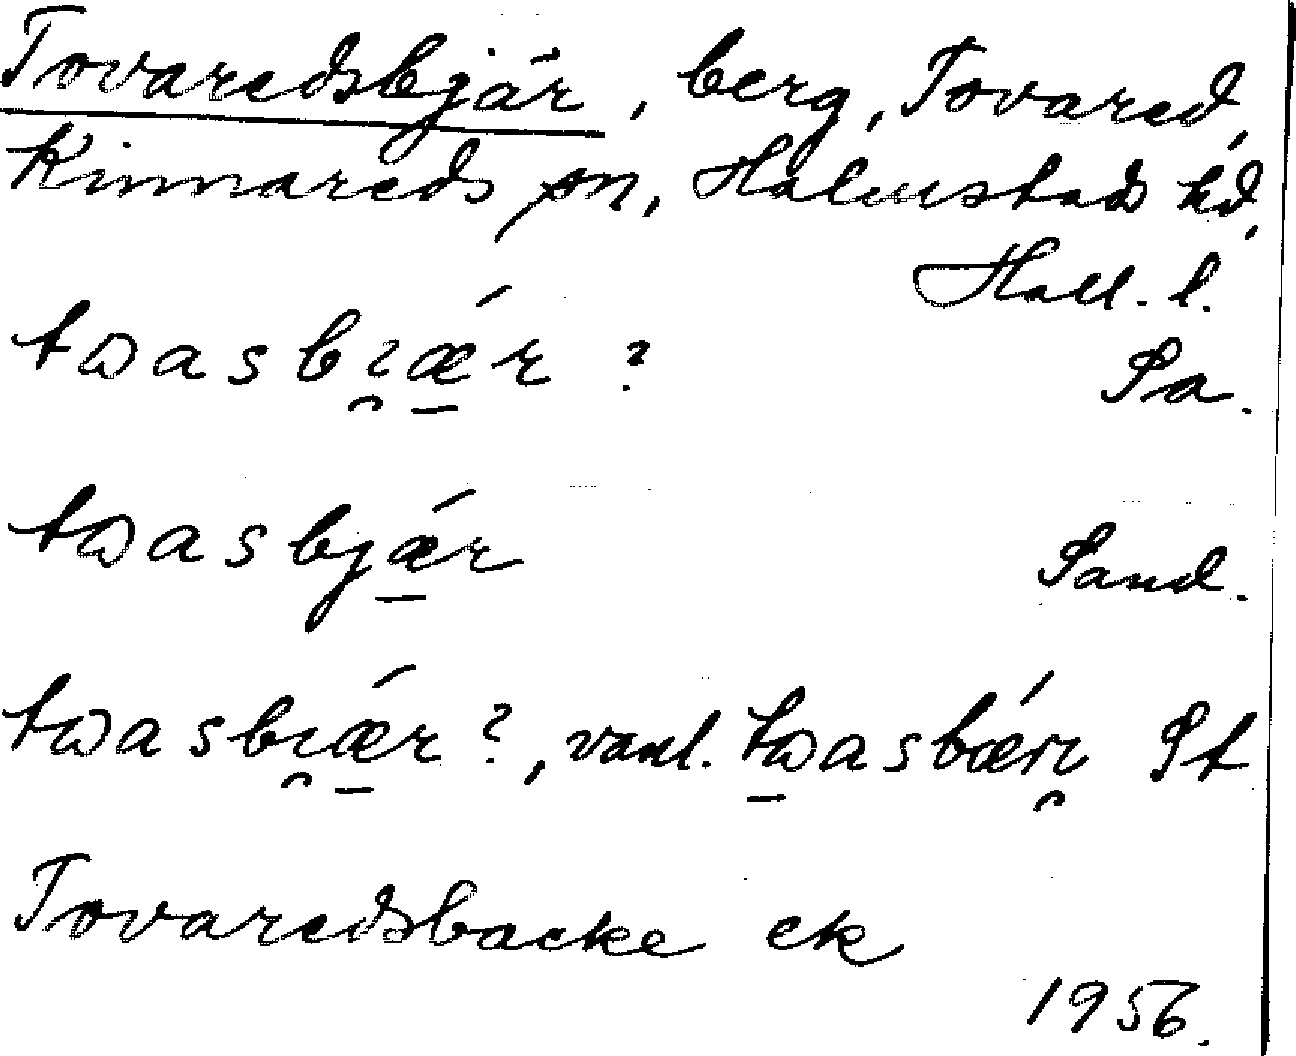 Tovaredsbjär, berg, Tovared,
Kinnareds sn, Halmstads hd,
Hall. l.
tɷasbı̯ǽ̠r ? Sa.
tɷasbjǽ̠r Sand.
tɷasbı̯ǽ̠r ?, vanl. tɷ̠asbǽrı̯ St
Tovaredsbacke ek
1956.